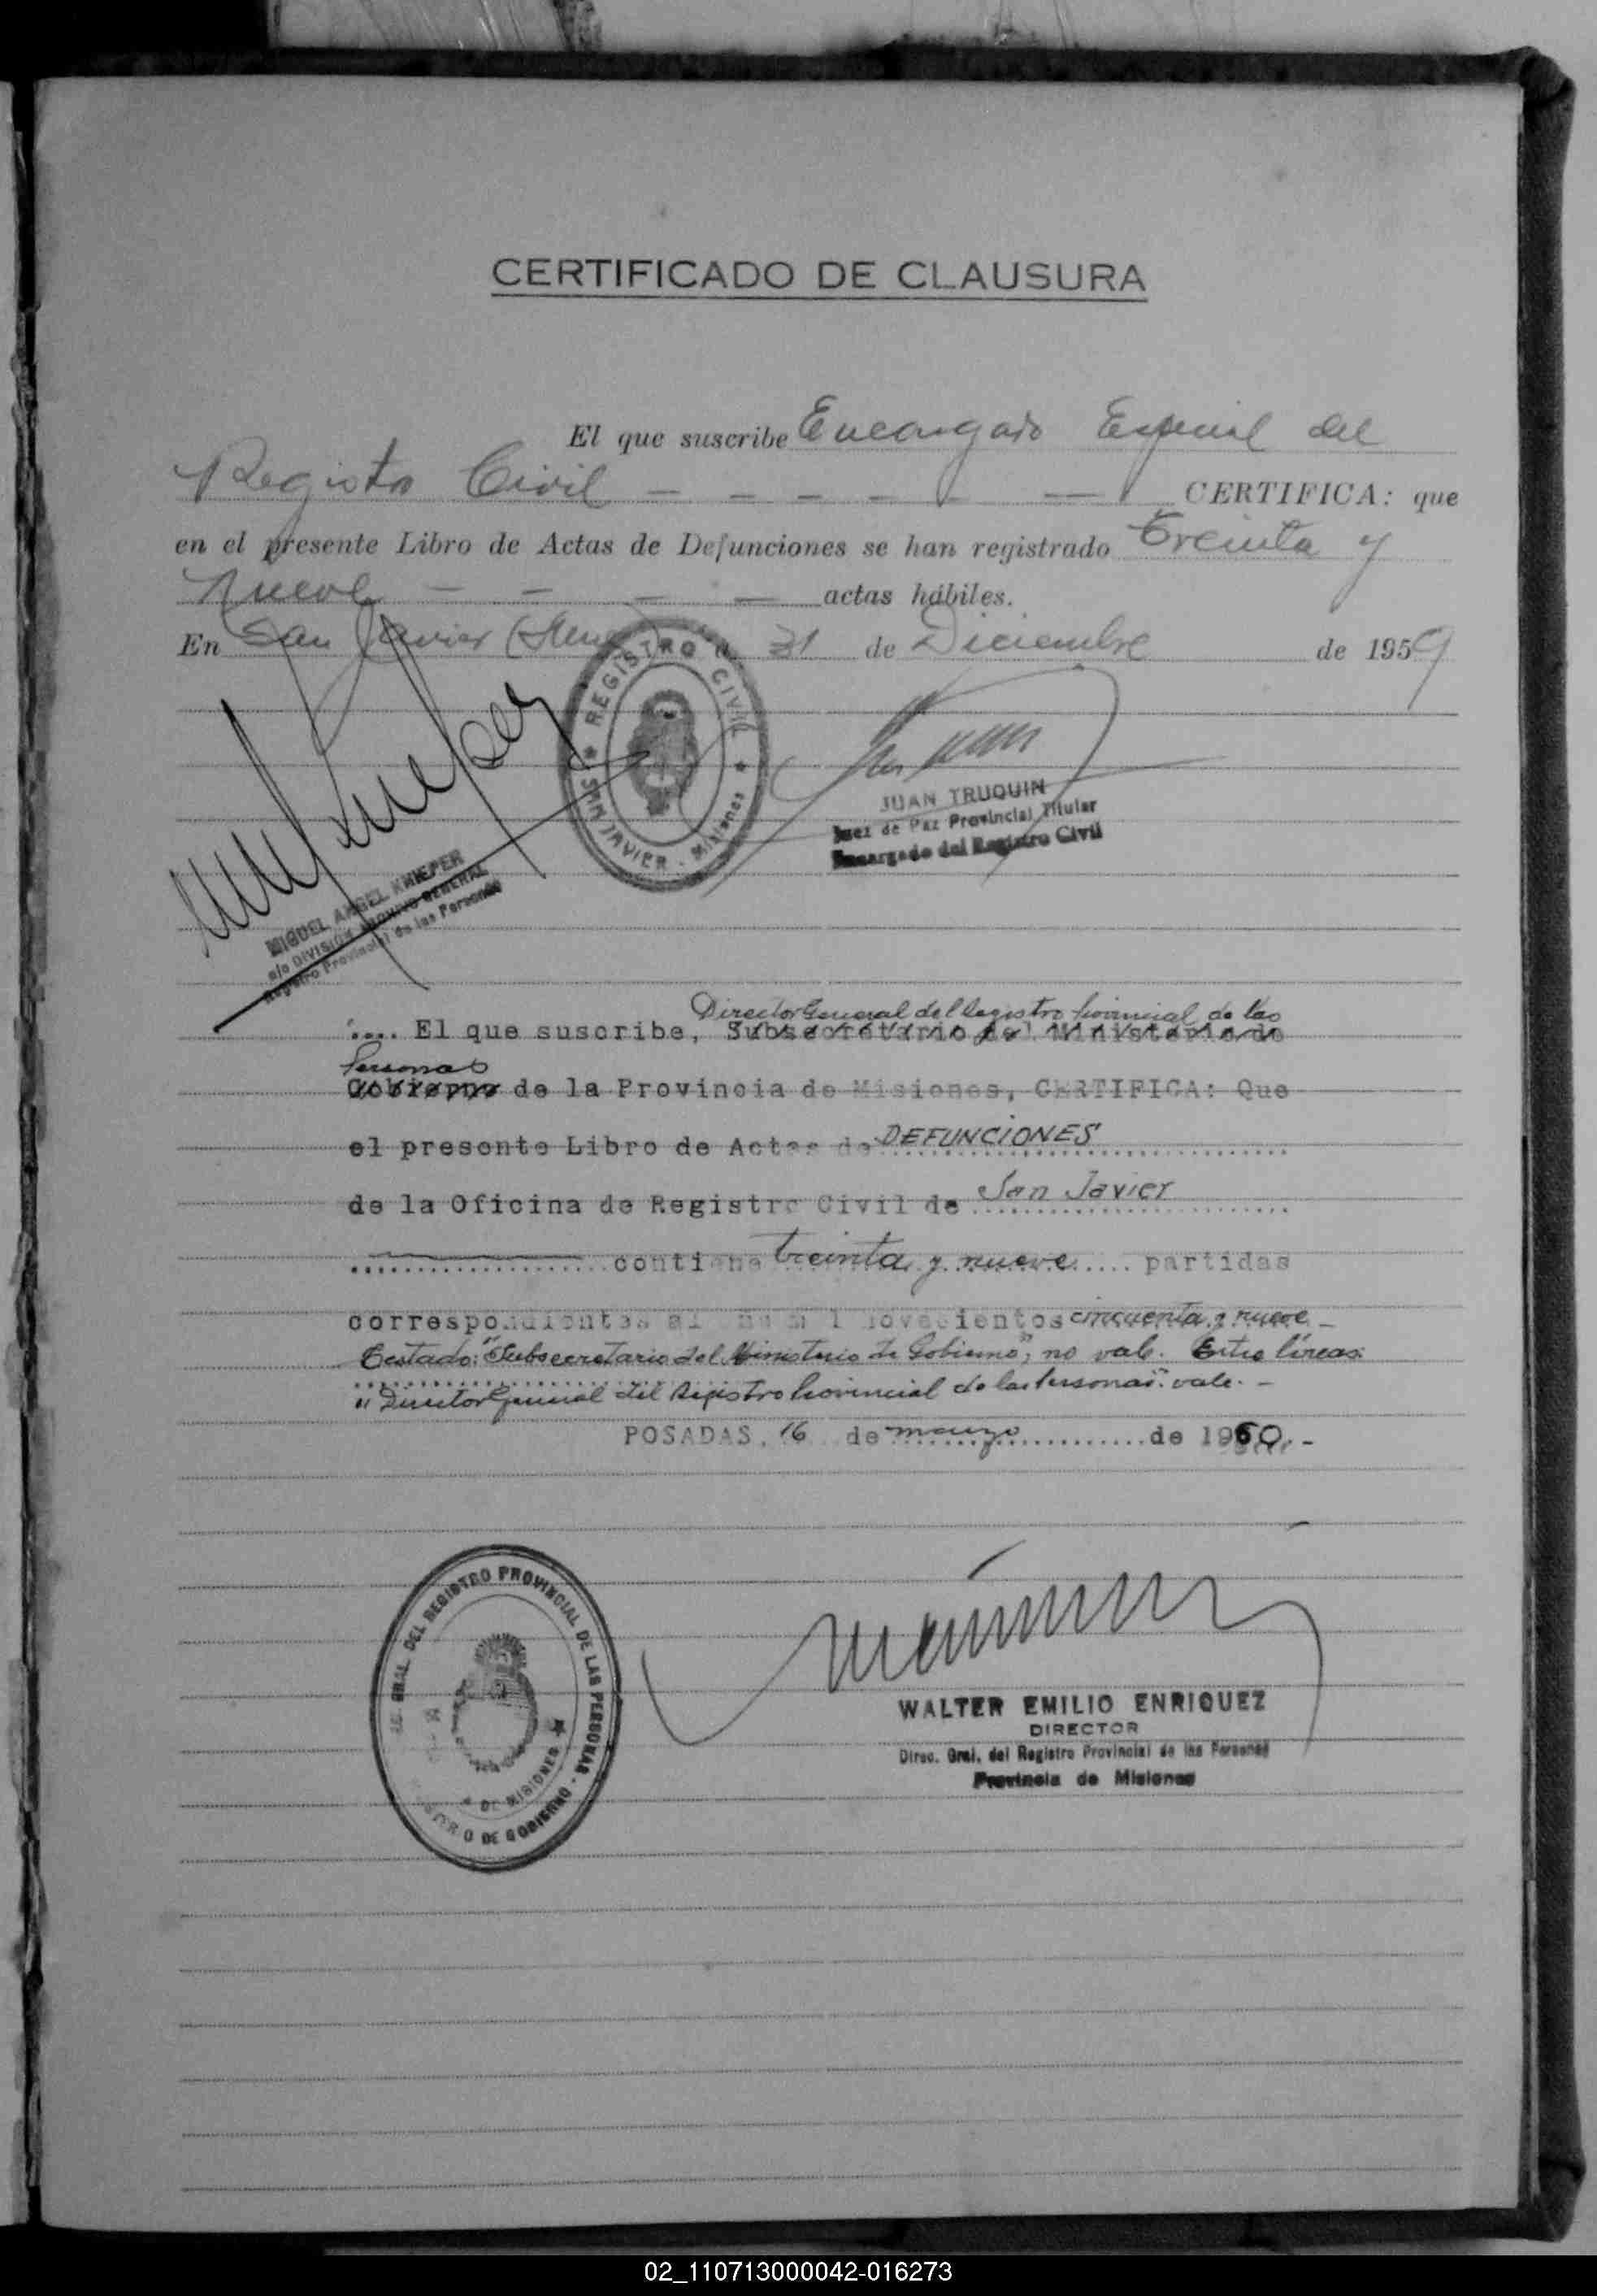 CERTIFICADO DE CLAUSURA
El que suscribe Encargado Especial del
Registro Civil — — — — — — CERTIFICA: que
en el presente Libro de Actas de Defunciones se han registrado Treinta y
Nueve — — — — actas hábiles.
En San Javier 31 de Diciembre de 1959
REGISTRO CIVIL
SAN JAVIER - Misiones
JUAN TRUQUIN
Juez de Paz Provincial Titular
Encargado del Registro Civil
MIGUEL ANGEL KNIEPER
a/c DIVISION ARCHIVO GENERAL
Registro Provincial de las Personas
Director General del Registro Provincial de las
.... El que suscribe, Subsecretario del Ministerio de
Personas
Gobierno de la Provincia de Misiones, CERTIFICA: Que
el presente Libro de Actas de DEFUNCIONES
de la Oficina de Registro Civil de San Javier
contiene treinta y nueve partidas
correspondientes al novecientos cincuenta y nueve -
Testado: "Subsecretario del Ministerio de Gobierno", no vale. Entre líneas:
"Director General del Registro Provincial de las Personas": vale. -
POSADAS, 16 de marzo de 1960.-
GRAL. DEL REGISTRO PROVINCIAL DE LAS PERSONAS -
DE MISIONES
DE GOBIERNO
WALTER EMILIO ENRIQUEZ
DIRECTOR
Direc. Gral. del Registro Provincial de las Personas
Provincia de Misiones
02_110713000042-016273